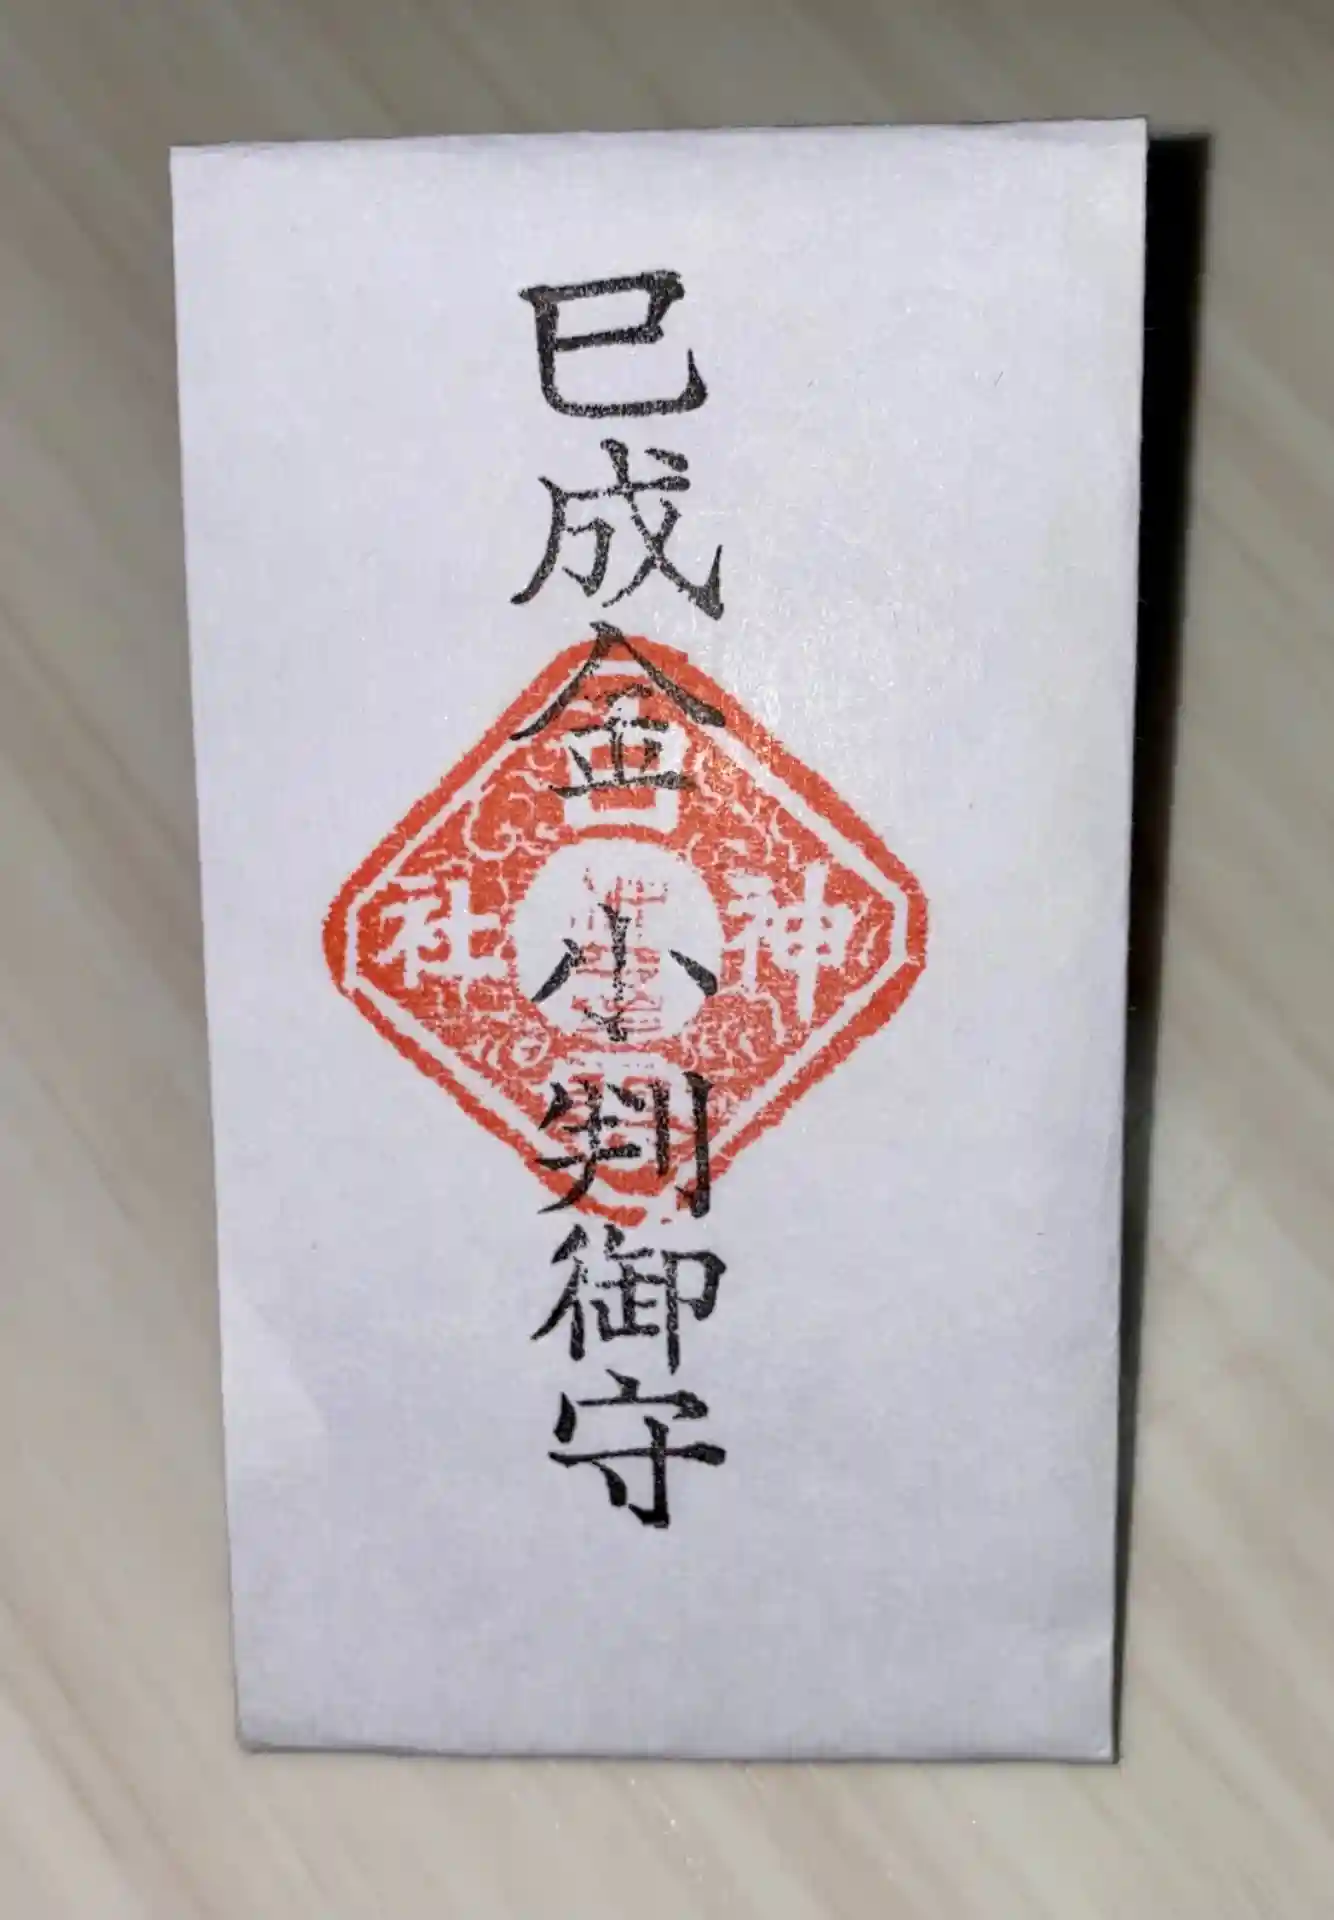 巳成金小判御守
神社